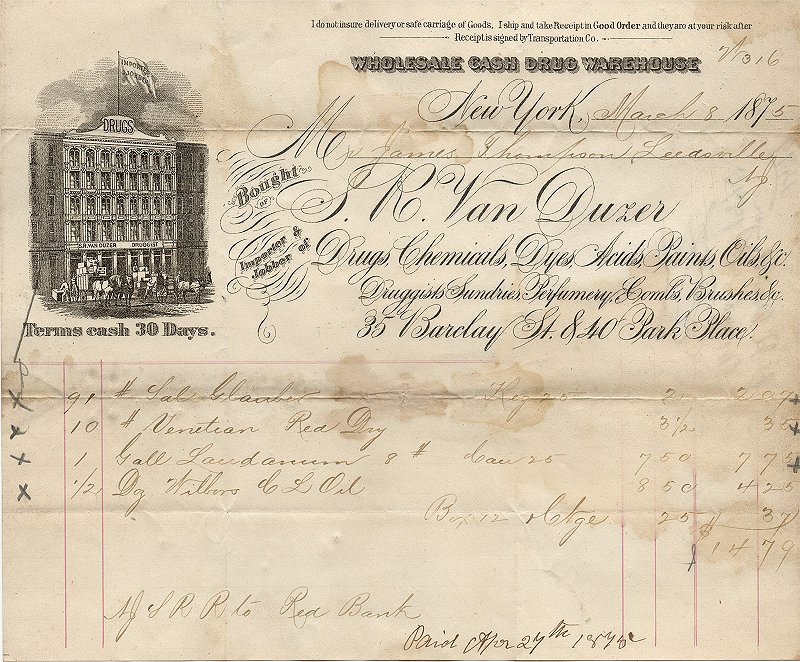 I do not insure delivery or safe carriage of Goods, I ship and take Receipt in Good Order and they are at your risk after
Receipt is signed by Transportation Co.
WHOLESALE CASH DRUG WAREHOUSE
316
New York, March 8 1875
Mr James Thompson Leedsville
NJ
Bought of
S. R. Van Duzer
Importer & Jobber of
Drugs, Chemicals, Dyes Acids, Paints, Oils, &c.
Druggists Sundries, Perfumery, Combs, Brushes &c.
35 Barclay St. & 40 Park Place.
IMPORTER
JOBBER
DRUGS
S.R. VAN DUZER DRUGGIST
Terms cash 30 Days.
91 # Sal Glauber Keg 25 2 2 07
10 # Venetian Red Dry 3 1/2 35
1 Gall Laudanum 8 # Can 25 7 50 7 75
1/2 Dz Wilbors C L Oil 8 50 4 25
Box 12 Ctge 25 37
$ 14 79
NJ S R R to Red Bank
Paid Apr 27th 1875